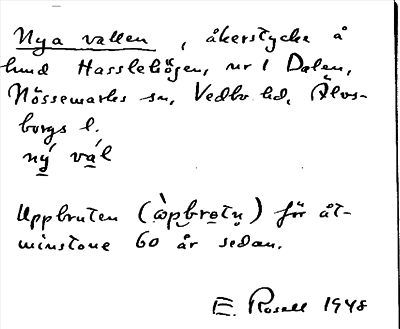 Nya vallen, åkerstycke å
lund Hasslehögen, nr 1 Dalen,
Nössemarks sn, Vedbo hd, Älvs-
borgs l.
ný vàl
Uppbruten (òpbrotu) för åt-
minstone 60 år sedan.
E. Rosell 1948